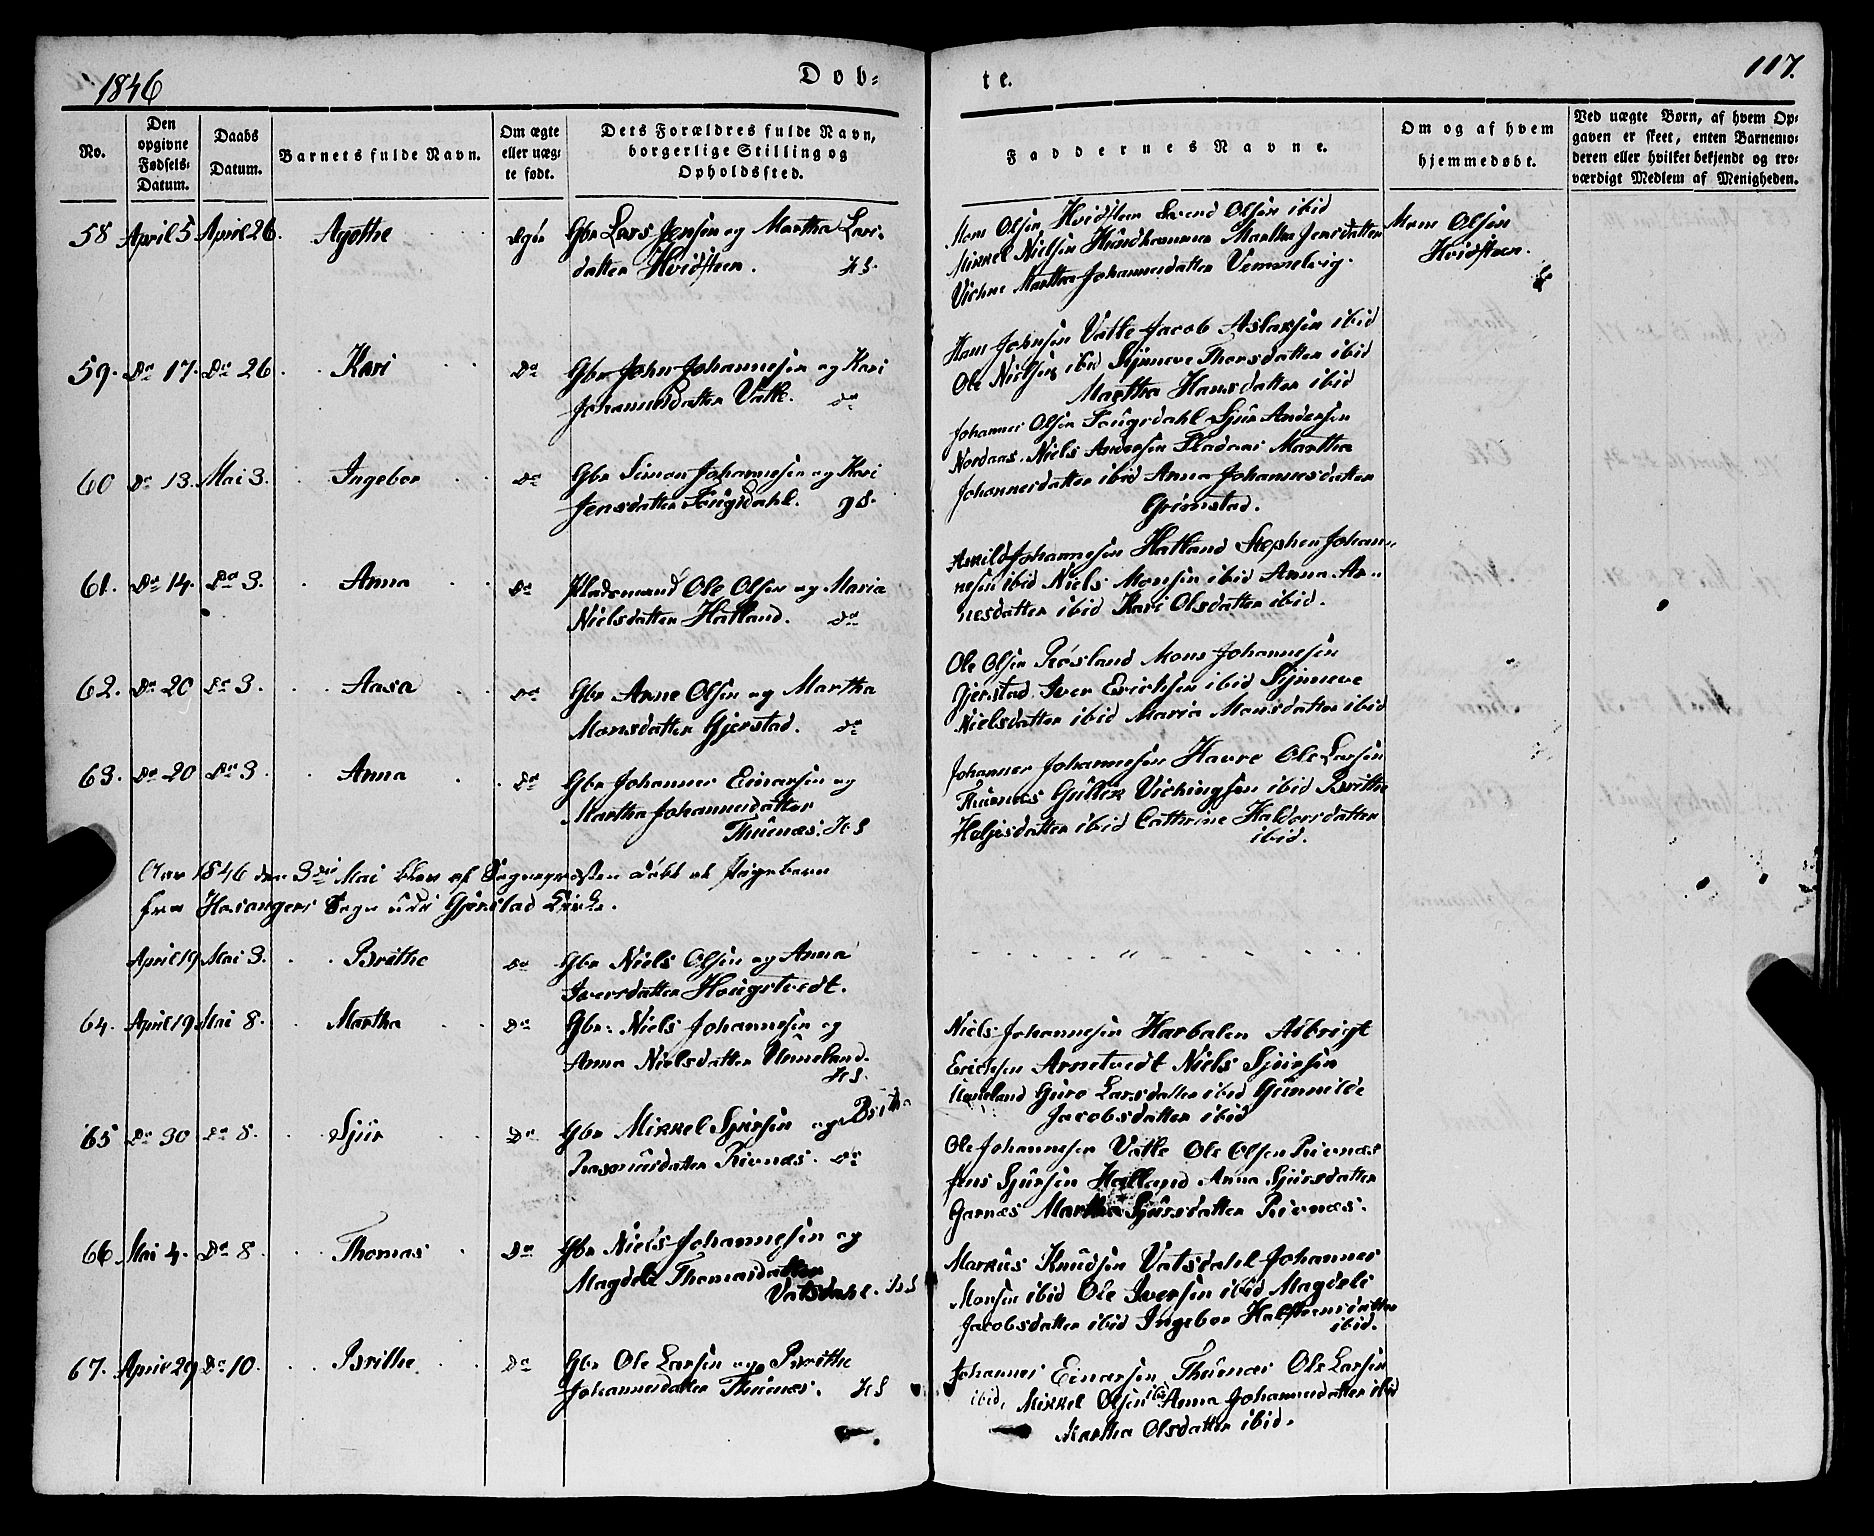 1846
Dob-
te.
117.
No.
Den opgivne Fødsels-Datum.
Daabs Datum.
Barnets fulde Navn.
Om ægte eller uægte født.
Dets Forældres fulde Navn, borgerlige Stilling og Opholdssted.
Faddernes Navne.
Om og af hvem hjemmedøbt.
Ved uægte Børn, af hvem Opgaven er skeet, enten Barnemoderen eller hvilket bekjendt og troværdigt Medlem af Menigheden.
58 April 5 April 26. Agothe ægte Gbr Lars Jensen og Martha Lars-
datter Hvidsteen. HS.
Mons Olsen Hvidsteen Svend Olsen ibid
Mikkel Nielsen Hundhammer Martha Jensdatter
Vichne Martha Johannesdatter Vemmelvig.
Mons Olsen
Hvidsteen.
59. Do 17. Do 26. Kari Do Gbr John Johannesen og Kari
Johannesdatter Vatle. do
Hans Johnsen Vatle Jacob Aslaksen ibid
Ole Nielsen ibid Synneve Thorsdatter ibid
Martha Hansdatter ibid
60 Do 13. Mai 3. Ingebor Do Gbr Simon Johannesen og Kari
Jensdatter Fougsdahl. gS.
Johannes Olsen Fougsdahl Sjur Andersen
Nordaas. Niels Andersen Fladaas Martha
Johannesdatter ibid Anna Johannesdatter
Grimstad.
61. Do 14. Do 3. Anna Do Pladsmand Ole Olsen og Maria
Nielsdatter Hatland. do
Johannesen Hatland Stephen Johan-
nesen ibid Niels Monsen ibid Anna Ar-
nesdatter ibid Kari Olsdatter ibid.
62. Do 20 Do 3. Aasa Do Gbr Arne Olsen og Martha
Monsdatter Gjerstad. do
Ole Olsen Røsland Mons Johannesen
Gjerstad. Iver Erichsen ibid Synneve
Nielsdatter ibid Maria Monsdatter ibid
63. Do 20 Do 3 Anna Do Gbr Johannes Einarsen og
Martha Johannesdatter
Thuenæs. HS
Johannes Johannesen Havre Ole Larsen
Thuenæs Gullik Vichingsen ibid Brithe
Heljesdatter ibid Cathrine Haldorsdatter
ibid.
Aar 1846 den 3die Mai blev af Sognepresten døbt et Pigebarn
fra Hosangers Sogn udi Gjerstad Kirke.
April 19 Mai 3. Brithe Do Gbr Niels Olsen og Anna
Iversdatter Hougstvedt.
64. April 19 Mai 8. Martha Do Gbr: Niels Johannesen og
Anna Nielsdatter Unneland.
HS.
Niels Johannesen Harbalen Albrigt
Erichsen Arnetvedt Niels Sjursen
Unneland Guro Larsdatter ibid Gunnilde
Jacobsdatter ibid
65 Do 30 Do 8. Sjur Do Gbr Mikkel Sjursen og Brithe
Rasmusdatter Rivenæs. do
Ole Johannesen Vatle Ole Olsen Rivenæs
Jens Sjursen Hatland Anna Sjursdatter
Garnæs Martha Sjursdatter Rivenæs.
66 Mai 4. Do 8. Thomas Do Gbr Niels Johannesen og
Magdeli Thomasdatter
Vatsdahl. HS
Markus Knudsen Vatsdahl Johannes
Monsen ibid Ole Iversen ibid Magdeli
Jacobsdatter ibid Ingebor Halsteensdatter
ibid.
67. April 29 Do 10. Brithe Do Gbr Ole Larsen og Brithe
Johannesdatter Thuenæs. HS
Johannes Einarsen Thuenæs Ole Larsen
ibid, Mikkel Olsen ibid Anna Johannesdatter ibid
Martha Olsdatter ibid.